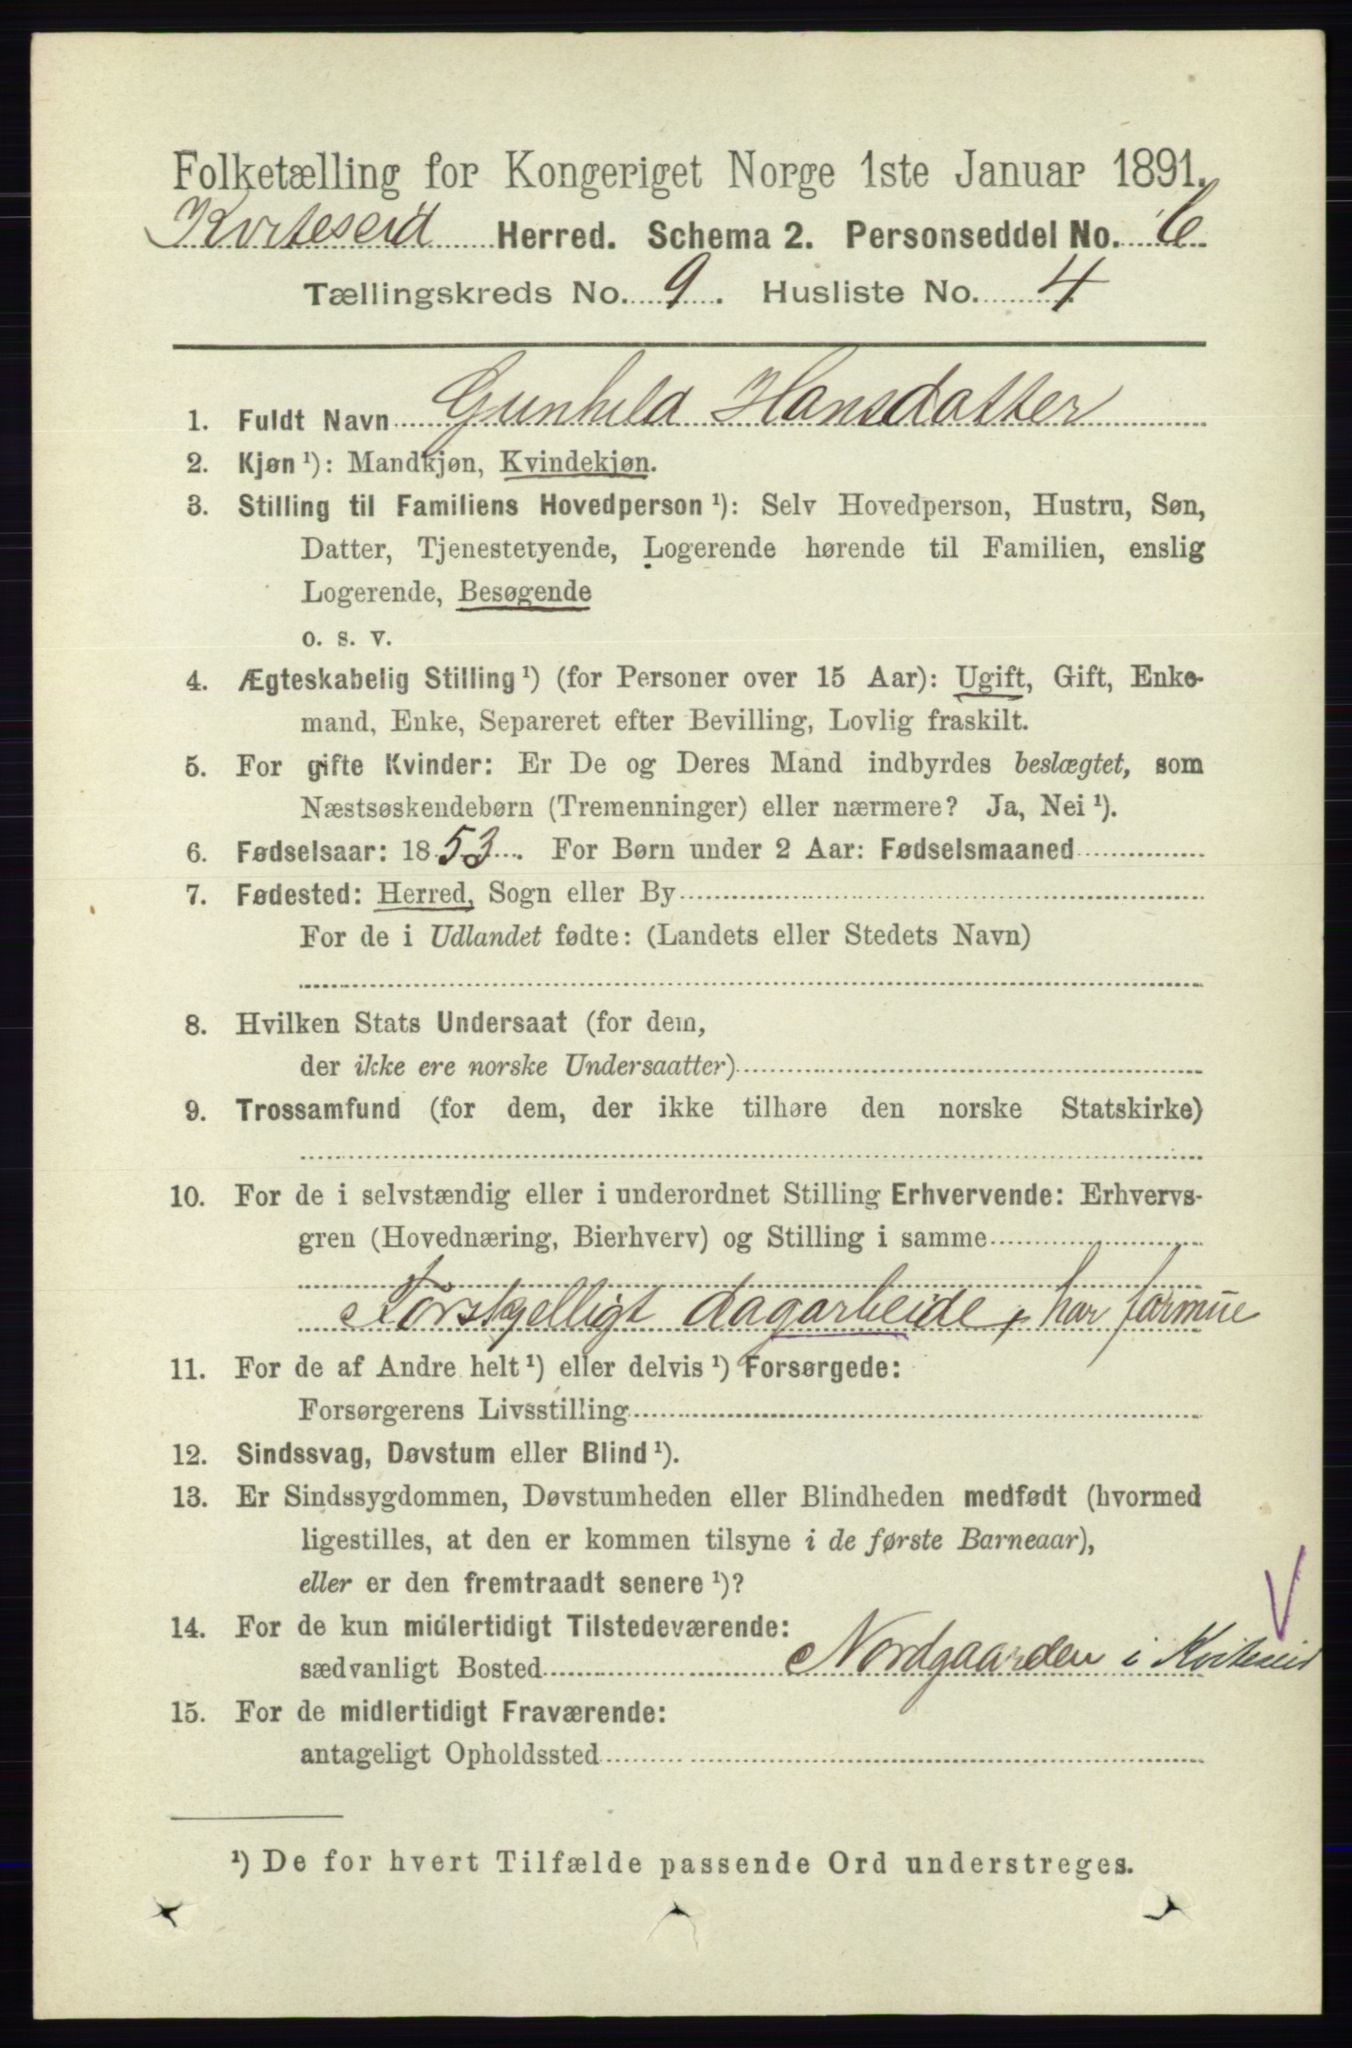 Folketælling for Kongeriget Norge 1ste Januar 1891.
Kviteseid Herred. Schema 2. Personseddel No. 6
Tællingskreds No. 9. Husliste No. 4
1. Fuldt Navn Gunhild Hansdatter
2. Kjøn ¹): Mandkjøn, Kvindekjøn.
3. Stilling til Familiens Hovedperson ¹): Selv Hovedperson, Hustru, Søn,
Datter, Tjenestetyende, Logerende hørende til Familien, enslig
Logerende, Besøgende
o. s. v.
4. Ægteskabelig Stilling ¹) (for Personer over 15 Aar): Ugift, Gift, Enke-
mand, Enke, Separeret efter Bevilling, Lovlig fraskilt.
5. For gifte Kvinder: Er De og Deres Mand indbyrdes beslægtet, som
Næstsøskendebørn (Tremenninger) eller nærmere? Ja, Nei ¹).
6. Fødselsaar: 1853. For Børn under 2 Aar: Fødselsmaaned
7. Fødested: Herred, Sogn eller By
For de i Udlandet fødte: (Landets eller Stedets Navn)
8. Hvilken Stats Undersaat (for dem,
der ikke ere norske Undersaatter)
9. Trossamfund (for dem, der ikke tilhøre den norske Statskirke)
10. For de i selvstændig eller i underordnet Stilling Erhvervende: Erhvervs-
gren (Hovednæring, Bierhverv) og Stilling i samme
Forskjelligt dagarbeide, har formue
11. For de af Andre helt ¹) eller delvis ¹) Forsørgede:
Forsørgerens Livsstilling
12. Sindssvag, Døvstum eller Blind ¹).
13. Er Sindssygdommen, Døvstumheden eller Blindheden medfødt (hvormed
ligestilles, at den er kommen tilsyne i de første Barneaar),
eller er den fremtraadt senere ¹)?
14. For de kun midlertidigt Tilstedeværende:
sædvanligt Bosted Nordgaarden i Kviteseid
15. For de midlertidigt Fraværende:
antageligt Opholdssted
¹) De for hvert Tilfælde passende Ord understreges.